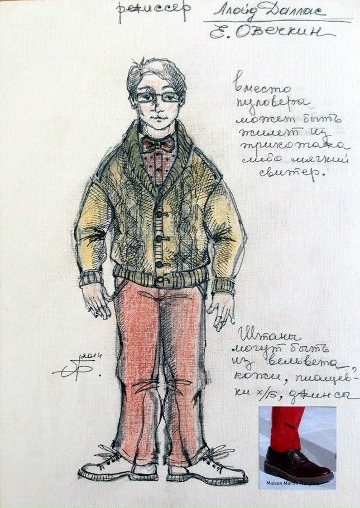 режиссер Ллойд Даллас
Е. Овечкин
вместо
пуловера
может быть
жилет из
трикотажа
либо мягкий
свитер.
Штаны
могут быть
из вельвета,
кожи, плащев-
ки х/б, джинсы
Maison Martin Margiela